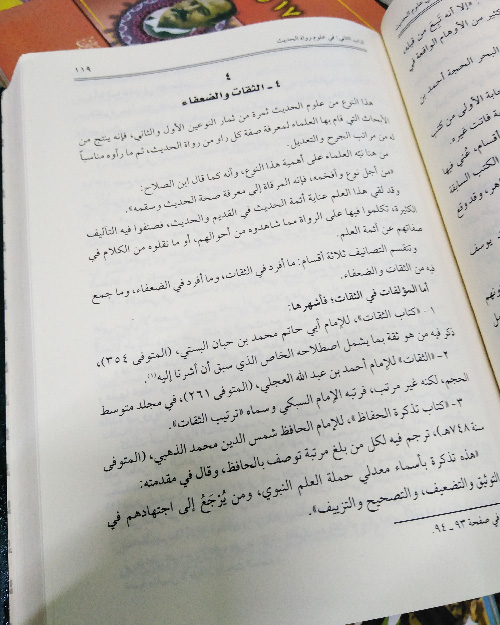 الباب الثاني: في علوم رواة الحديث
١١٩
٤
٤ - الثقات والضعفاء
هذا النوع من علوم الحديث ثمرة من ثمار النوعين الأول والثاني، فإنه ينتج من
الأبحاث التي قام بها العلماء لمعرفة صفة كل راو من رواة الحديث، ثم ما رأوه مناسباً
له من مراتب الجرح والتعديل.
من هنا نبّه العلماء على أهمية هذا النوع، وأنه كما قال ابن الصلاح:
«من أجل نوع وأفخمه، فإنه المرقاة إلى معرفة صحة الحديث وسقمه».
وقد لقي هذا العلم عناية أئمة الحديث في القديم والحديث، فصنفوا فيه التآليف
الكثيرة، تكلموا فيها على الرواة مما شاهدوه من أحوالهم، أو ما نقلوه من الكلام في
صفاتهم عن أئمة العلم.
وتنقسم التصانيف ثلاثة أقسام: ما أفرد في الثقات، وما أفرد في الضعفاء، وما جمع
فيه من الثقات والضعفاء.
أما المؤلفات في الثقات؛ فأشهرها:
١ - «كتاب الثقات»، للإمام أبي حاتم محمد بن حبان البستي، (المتوفى ٣٥٤)،
ذكر فيه من هو ثقة بما يشمل اصطلاحه الخاص الذي سبق أن أشرنا إليه(١).
٢ - «الثقات» للإمام أحمد بن عبد الله العجلي، (المتوفى ٢٦١)، في مجلد متوسط
الحجم، لكنه غير مرتب، فرتبه الإمام السبكي وسماه «ترتيب الثقات».
٣ - «كتاب تذكرة الحفاظ»، للإمام الحافظ شمس الدين محمد الذهبي، (المتوفى
سنة ٧٤٨هـ)، ترجم فيه لكل من بلغ مرتبة توصف بالحافظ، وقال في مقدمته:
«هذه تذكرة بأسماء معدلي حملة العلم النبوي، ومن يُرْجَعُ إلى اجتهادهم في
التوثيق والتضعيف، والتصحيح والتزييف».
في صفحة ٩٣ - ٩٤.
«إلا أنه تبع من قبله
من الأوهام الواقعة في
البحر الحجة أحمد بن
الأولى من كتب
فاتت غيره.
أقسام، عُني فيها
الكتب السابقة
يوسف
١٧